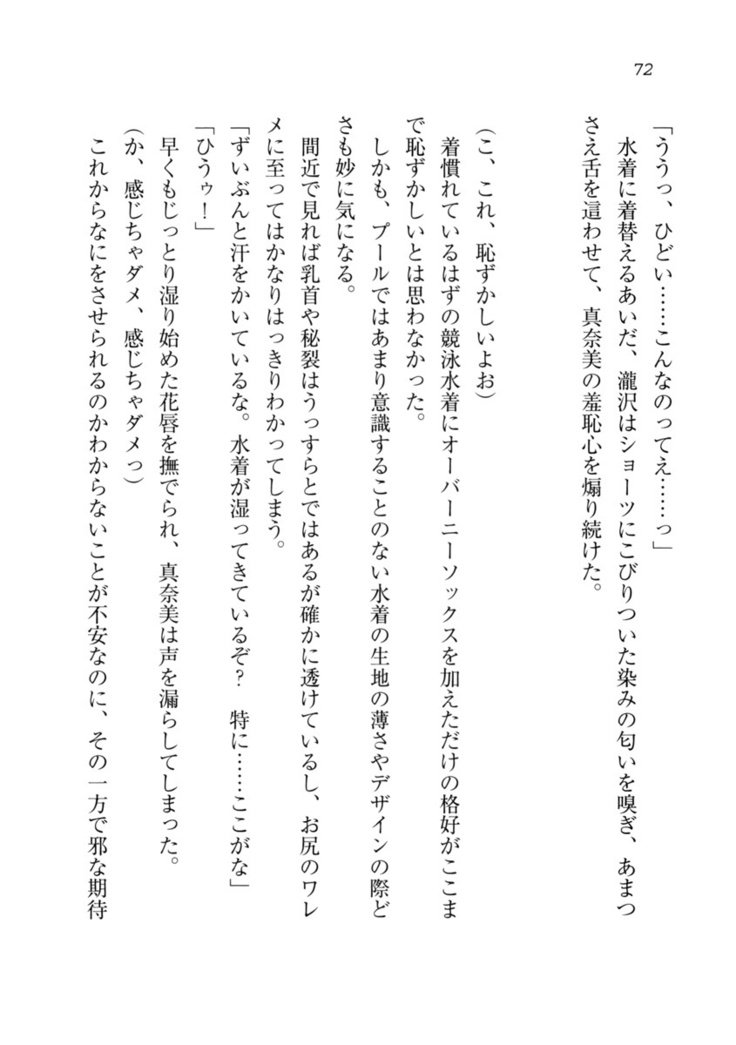 72
「ううっ、ひどい……こんなのってえ……っ」
水着に着替えるあいだ、瀧沢はショーツにこびりついた染みの匂いを嗅ぎ、あまつ
さえ舌を這わせて、真奈美の羞恥心を煽り続けた。
(こ、これ、恥ずかしいよお)
着慣れているはずの競泳水着にオーバーニーソックスを加えただけの格好がここま
で恥ずかしいとは思わなかった。
しかも、プールではあまり意識することのない水着の生地の薄さやデザインの際ど
さも妙に気になる。
間近で見れば乳首や秘裂はうっすらとではあるが確かに透けているし、お尻のワレ
メに至ってはかなりはっきりわかってしまう。
「ずいぶんと汗をかいているな。水着が湿ってきているぞ？　特に……ここがな」
「ひうゥ！」
早くもじっとり湿り始めた花唇を撫でられ、真奈美は声を漏らしてしまった。
(か、感じちゃダメ、感じちゃダメっ)
これからなにをさせられるのかわからないことが不安なのに、その一方で邪な期待